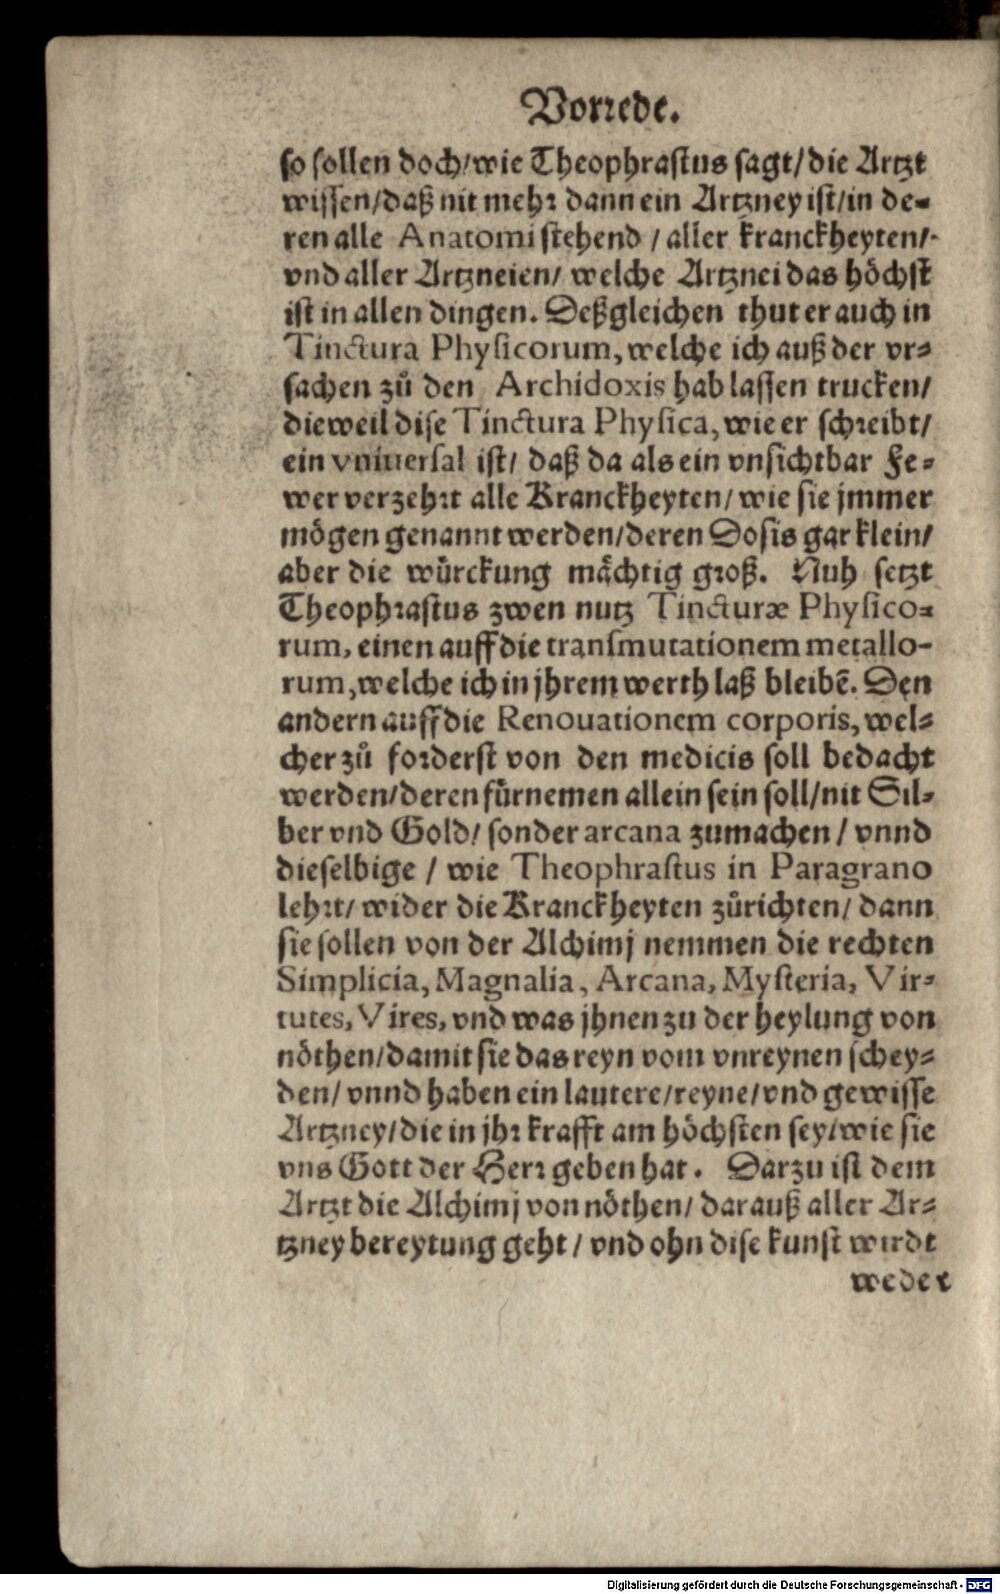 Vorrede.
so sollen doch/wie Theophrastus sagt/die Artzt
wissen/daß nit mehr dann ein Artzney ist/in de-
ren alle Anatomi stehend / aller kranckheyten/
vnd aller Artzneien/ welche Artznei das höchst
ist in allen dingen. Deßgleichen thut er auch in
Tinctura Physicorum, welche ich auß der vr-
sachen zů den Archidoxis hab lassen trucken/
dieweil dise Tinctura Physica, wie er schreibt/
ein vniuersal ist/ daß da als ein vnsichtbar Fe-
wer verzehrt alle Kranckheyten/ wie sie jmmer
mögen genannt werden/deren Dosis gar klein/
aber die würckung mächtig groß. Nuh setzt
Theophrastus zwen nutz Tincturæ Physico-
rum, einen auff die transmutationem metallo-
rum, welche ich in jhrem werth laß bleibẽ. Den
andern auff die Renouationem corporis, wel-
cher zů forderst von den medicis soll bedacht
werden/deren fürnemen allein sein soll/nit Sil-
ber vnd Gold/ sonder arcana zumachen / vnnd
dieselbige / wie Theophrastus in Paragrano
lehrt/ wider die Kranckheyten zůrichten/ dann
sie sollen von der Alchimj nemmen die rechten
Simplicia, Magnalia, Arcana, Mysteria, Vir-
tutes, Vires, vnd was jhnen zu der heylung von
nöthen/damit sie das reyn vom vnreynen schey-
den/ vnnd haben ein lautere/reyne/vnd gewisse
Artzney/die in jhr krafft am höchsten sey/wie sie
vns Gott der Herr geben hat. Darzu ist dem
Artzt die Alchimj von nöthen/ darauß aller Ar-
tzney bereytung geht / vnd ohn dise kunst wirdt
weder
Digitalisierung gefördert durch die Deutsche Forschungsgemeinschaft - DFG